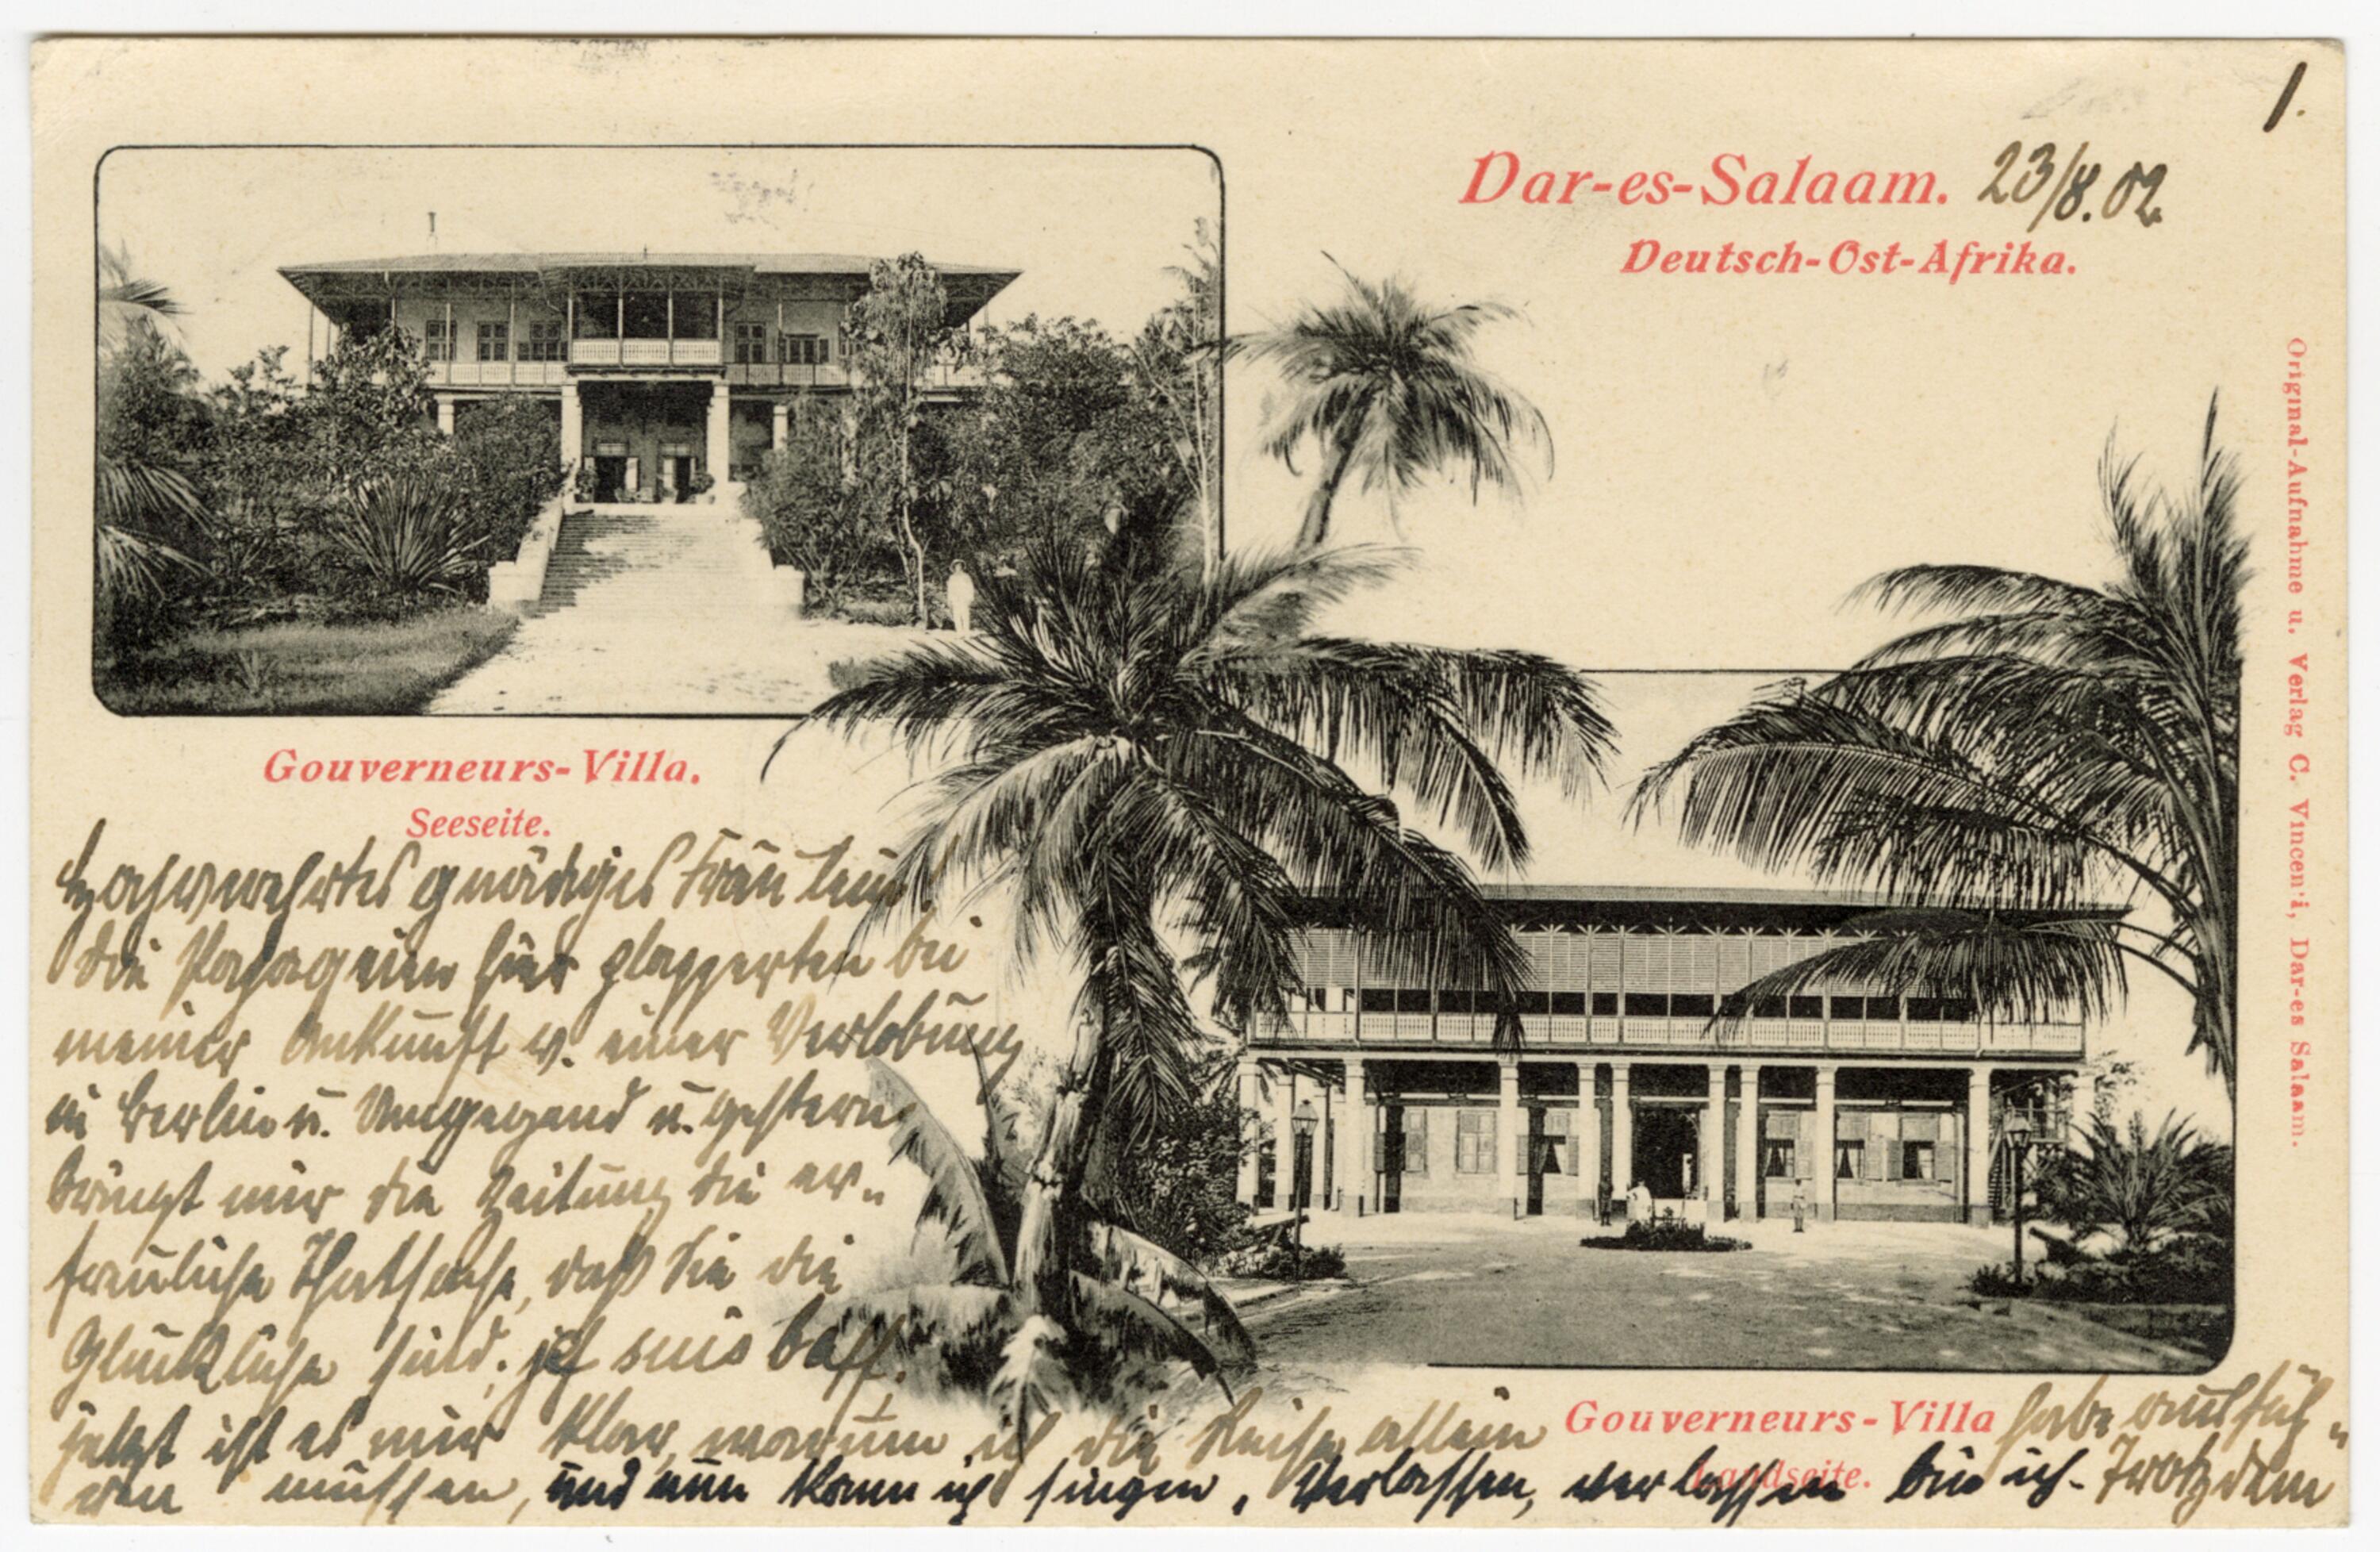 1.
Dar-es-Salaam. 23/8.02.
Deutsch-Ost-Afrika.
Original-Aufnahme u. Verlag C. Vincenti, Dar-es Salaam.
Gouverneurs-Villa.
Seeseite.
Hochverehrtes gnädiges Fräulein!
Die Papageien hier plapperten bei
meiner Ankunft v. einer Verlobung
in Berlin u. Umgegend u. gestern
bringt mir die Zeitung die er-
freuliche Thatsache, daß Sie die
Glückliche sind. je suis baff.
jetzt ist es mir klar, warum ich die Reise allein habe ausfüh-
Gouverneurs-Villa
Landseite.
ren müssen, und nun kann ich singen, Verlassen, verlassen bin ich. Trotzdem